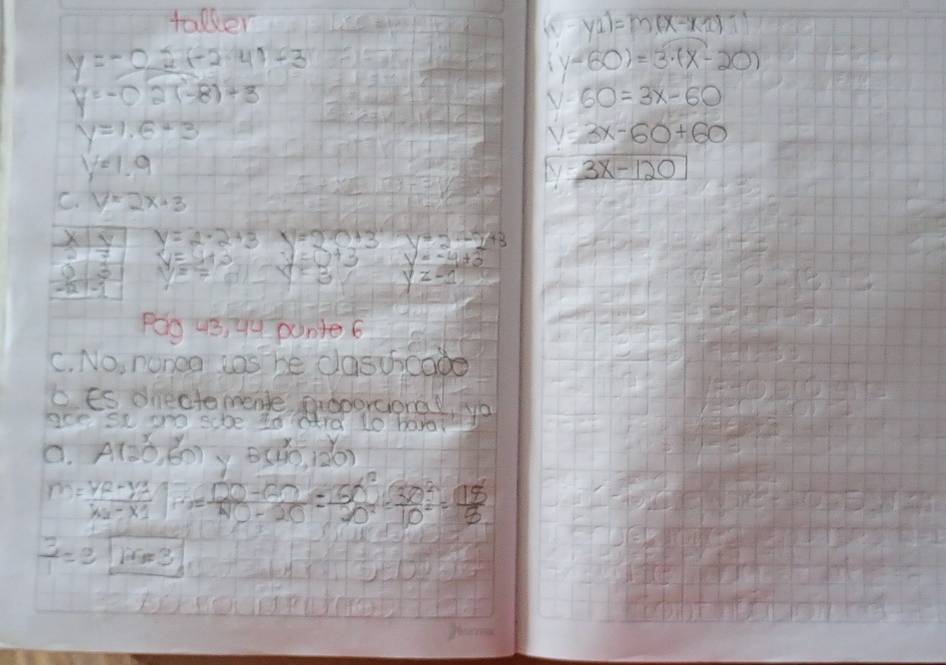 taller
y = -0.2 (-2·4) + 3
y = -0.2 (-8) + 3
y = 1.6 + 3
y = 1.9
C. y = 2x+3
x y
y = 2·2+3 y = 2·0+3 y = 2·-2+3
y = 4+3 y = 0+3 y = -4+3
y = 7 y = 3 y = -1
Pág 43, 44 punto 6
C. No, nunca las he clasificado
b. Es directamente proporcional, ya
que si una sube la otra lo hará
a. A(20, 60) y B(40, 120)
m = y2-y1 / x2-x1 m = 120-60 / 40-20 = 60 / 20 = 30 / 10 = 15 / 5
3/1 = 3 m = 3
(y - y1) = m(x - x1)
(y - 60) = 3·(x - 20)
y - 60 = 3x - 60
y = 3x - 60 + 60
y = 3x - 120